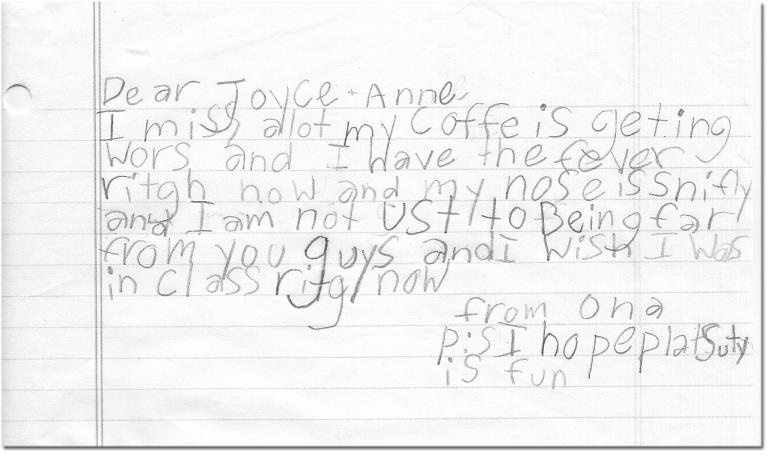 Dear Joyce + Anne
I miss alot my coffe is geting
wors and I have the fever
ritgh now and my nose is snifly
and I am not ust to Being far
from you guys and I wish I was
in class ritgh now
from Ona
p.s I hope plat Suty
is fun